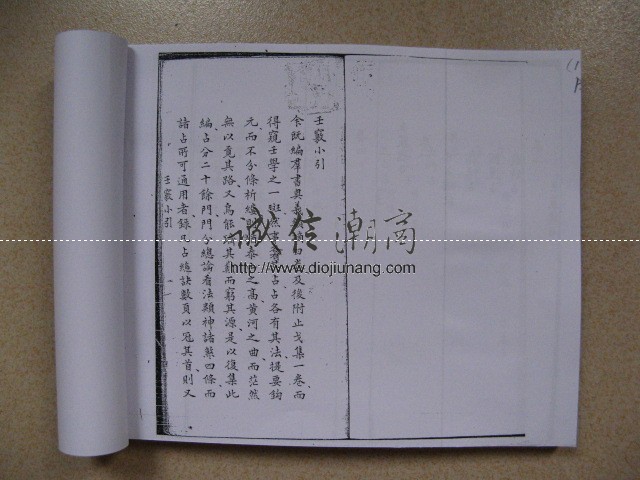 壬竅小引
余既編羣書奧義 及後附止戈集一卷而
得窺壬學之一斑然 占占各有其法提要鈎
元而不分條析縷則 之高黃河之曲而茫然
無以覓其路又烏能 其 而窮其源是以復集此
編占分二十餘門門分總論看法類神諸煞四條而
諸占所可通用者錄凡占總訣數頁以冠其首則又
壬竅小引
誠信潮商
http://www.diojiunang.com